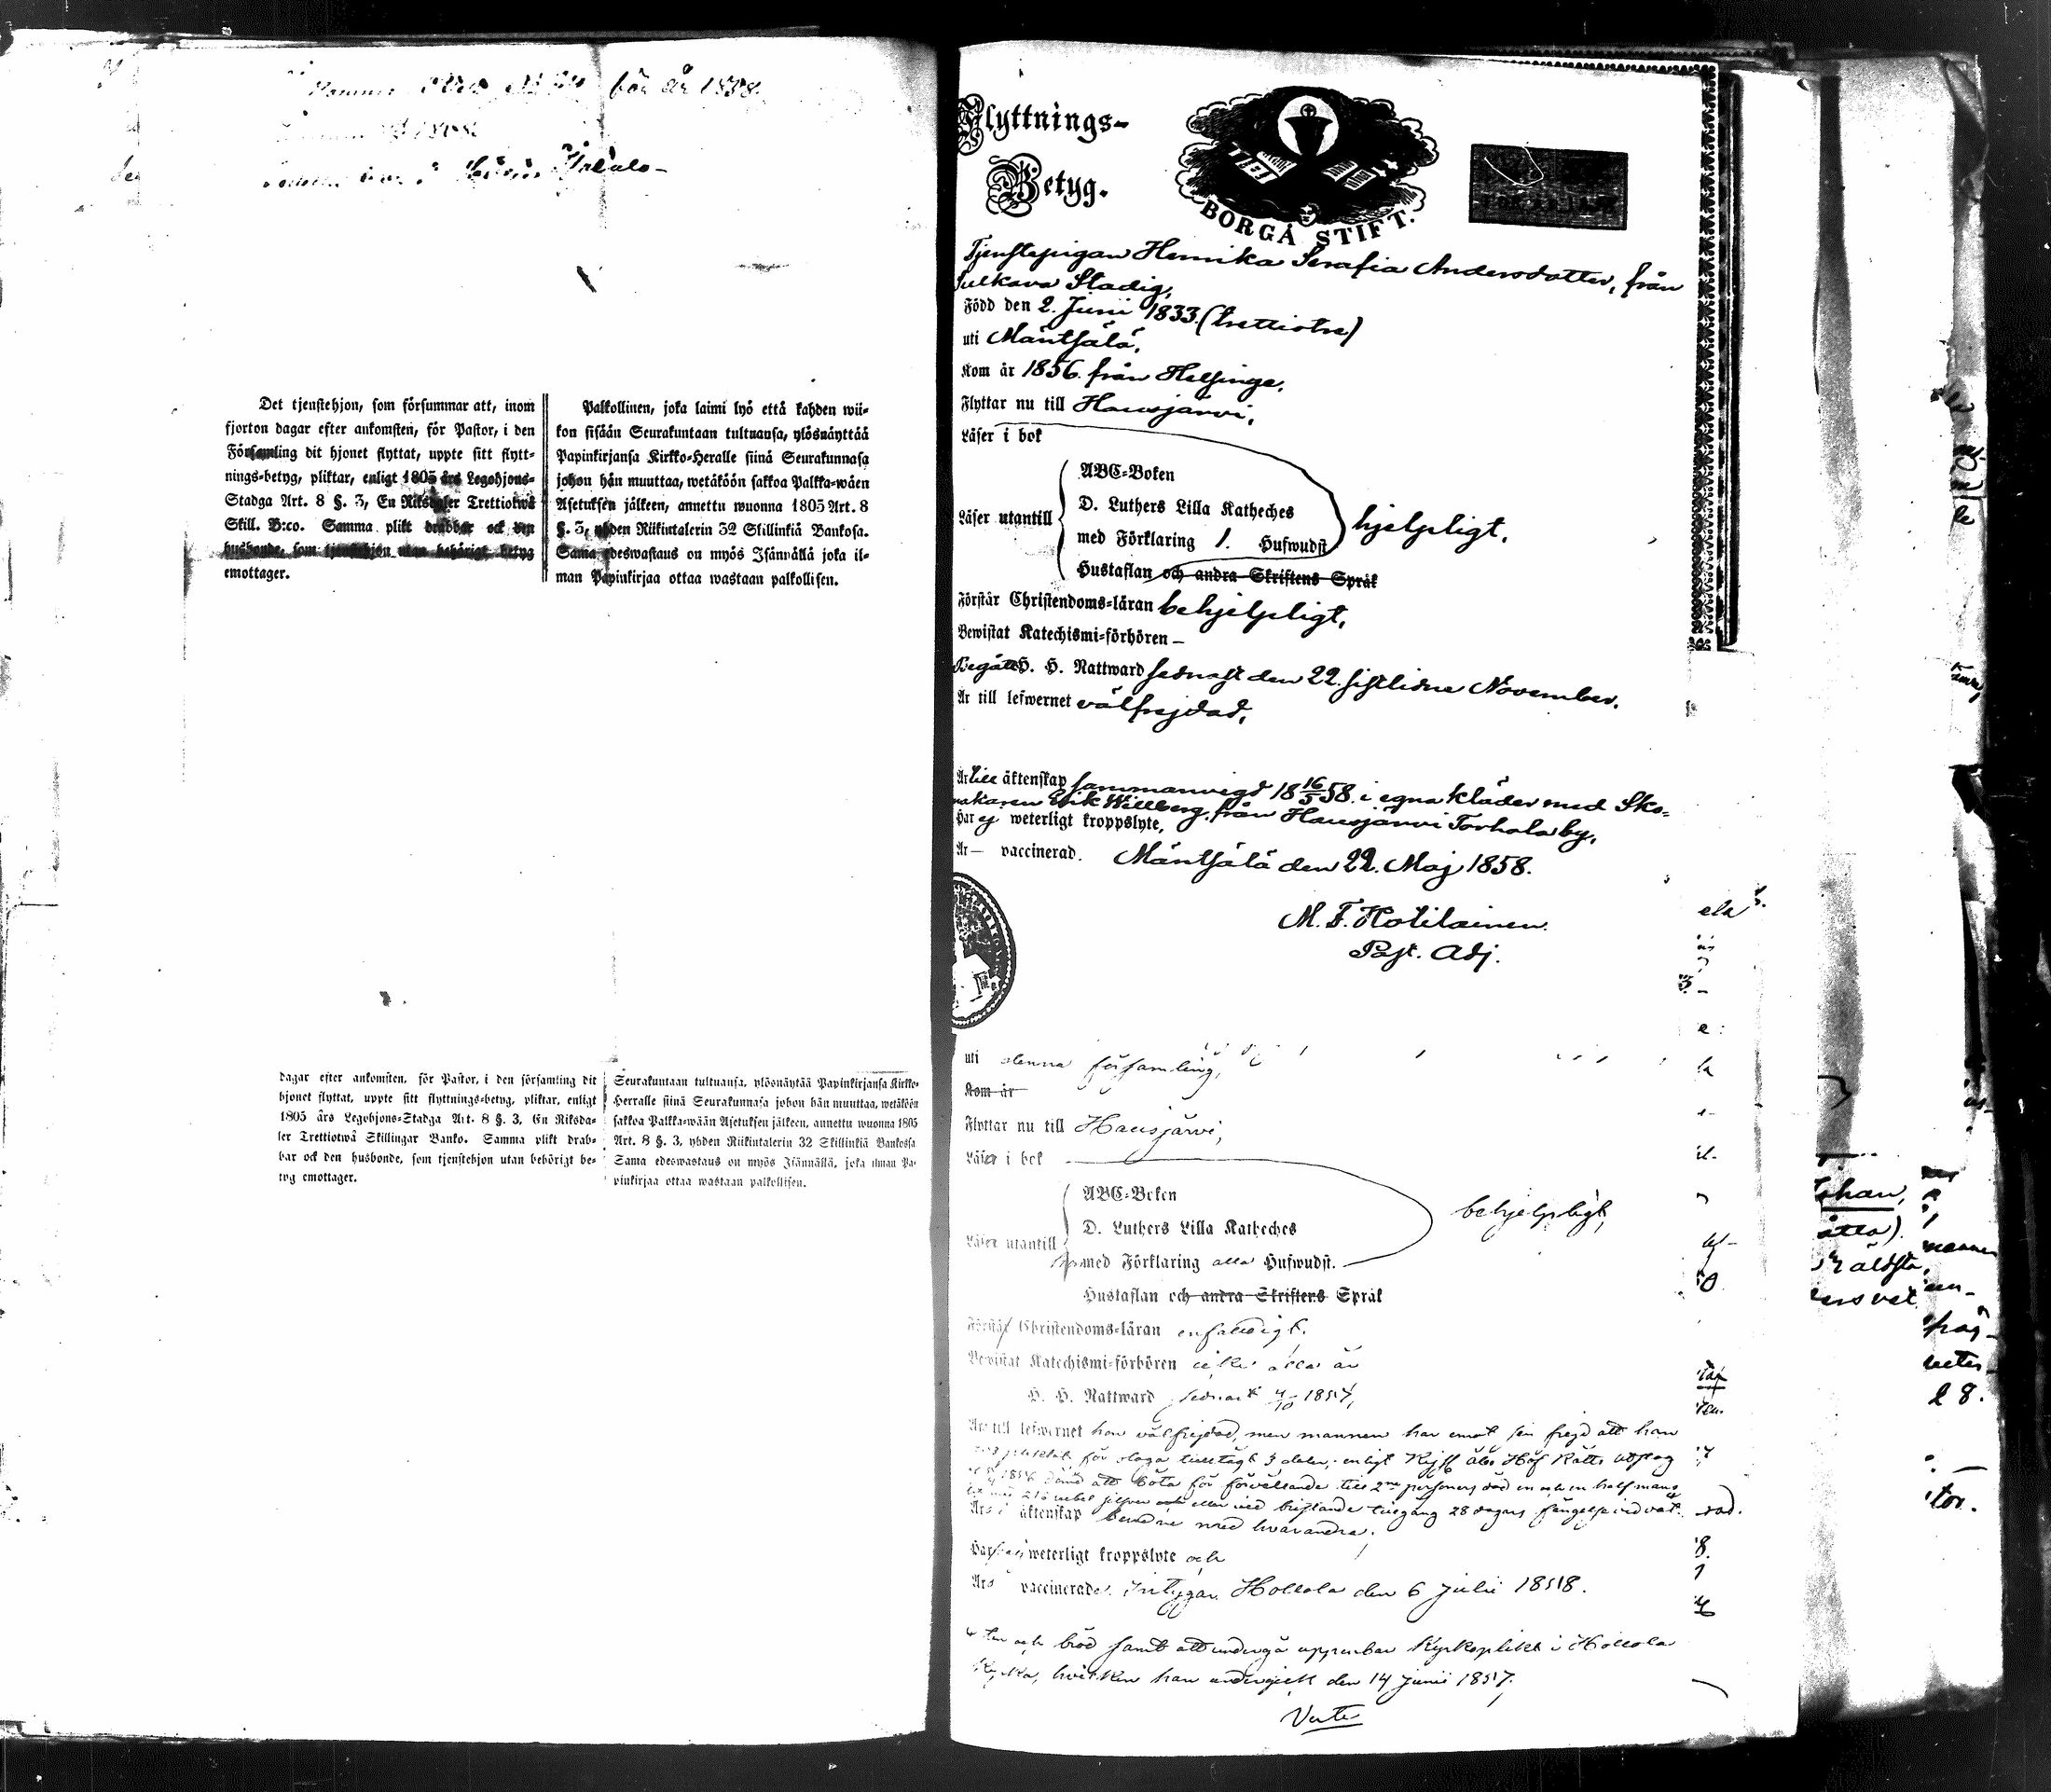 för år 1858.
Det tjenstehjon, som försummar att, inom
fjorton dagar efter ankomsten, för Pastor, i den
Församling dit hjonet flyttat, uppte sitt flytt-
nings-betyg, pliktar, enligt 1805 års Legohjons-
Stadga Art. 8 §. 3, En Riksdaler Trettiotwå
Skill. B:co. Samma plikt drabbar ock den
husbonde, som tjenstehjon utan behörigt betyg
emottager.
Palkollinen, joka laimi lyö että kahden wii-
kon sisään Seurakuntaan tultuansa, ylösnäyttää
Papinkirjansa Kirkko-Heralle siinä Seurakunnasa
johon hän muuttaa, wetäköön sakkoa Palkka-wäen
Asetuksen jälkeen, annettu wuonna 1805 Art. 8
§. 3, yhden Riikintalerin 32 Skillinkiä Bankosa.
Sama edeswastaus on myös Isännällä joka il-
man Papinkirjaa ottaa wastaan palkollisen.
dagar efter ankomsten, för Pastor, i den församling dit
hjonet flyttat, uppte sitt flyttnings-betyg, pliktar, enligt
1805 års Legohjons-Stadga Art. 8 §. 3, En Riksda-
ler Trettiotwå Skillingar Banko. Samma plikt drab-
bar ock den husbonde, som tjenstehjon utan behörigt be-
tyg emottager.
Seurakuntaan tultuansa, ylösnäytää Papinkirjansa Kirkko-
Herralle siinä Seurakunnasa johon hän muuttaa, wetäköön
sakkoa Palkka-wään Asetuksen jälkeen, annettu wuonna 1805
Art. 8 §. 3, yhden Riikintalerin 32 Skillinkiä Bankossa
Sama edeswastaus on myös Isännällä, joka ilman Pa-
pinkirjaa ottaa wastaan palkollisen.
Flyttnings-
Betyg.
BORGÅ STIFT.
Tjenstepigan Henrika Serafia Andersdotter, från
Sulkava Stadig,
Född den 2. Junii 1833. (trettiotre)
uti Mäntsälä,
Kom år 1856. från Helsinge,
Flyttar nu till Hausjärvi,
Läser i bok
ABC-Boken
D. Luthers Lilla Katheches
Läser utantill
med Förklaring 1. Hufwudst
hjelpligt,
Hustaflan och andra Skriftens Språk
Förstår Christendoms-läran behjelpligt,
Bewistat Katechismi-förhören –
Begått H. H. Nattward sednast den 22. sistlidne November.
Är till lefwernet välfrejdad,
Är till äktenskap sammanvigd 18 16/5 58. i egna kläder med Sko-
makaren Erik Willberg från Hausjärvi Torhola by,
Har ej weterligt kroppslyte,
Är – vaccinerad.
Mäntsälä den 22. Maj 1858.
M. F. Hotilainen.
Past. Adj.
uti denna församling,
Kom år
Flyttar nu till Hausjärvi,
Läser i bok
ABC-Boken
D. Luthers Lilla Katheches
Läser utantill
med Förklaring alla Hufwudst.
behjelpligt,
Hustaflan och andra Skriftens Språk
Förstår Christendoms-läran enfaldigt.
Bewistat Katechismi-förhören
H. H. Nattward sednast 4/10 1857,
Är till lefwernet hon välfrejdad, men mannen har emot sin frejd att han
för olaga 3 dalr, enligt Kejs Åbo Hof Rätts utslag
1856 dömd att böta för förvållande till 2ne personers död en och en half mans
silfver eller vid bristande tillgång 28 dagars fängelse vid vat-
Är i äktenskap med hvarandra.
Har weterligt kroppslyte och
Är vaccinerade. Intygar Hollola den 6 Julii 1858.
ten och bröd samt att undergå uppenbar Kyrkoplikt i Hollola
Kyrka, hvilken han undergick den 14 Junii 1857.
Verte